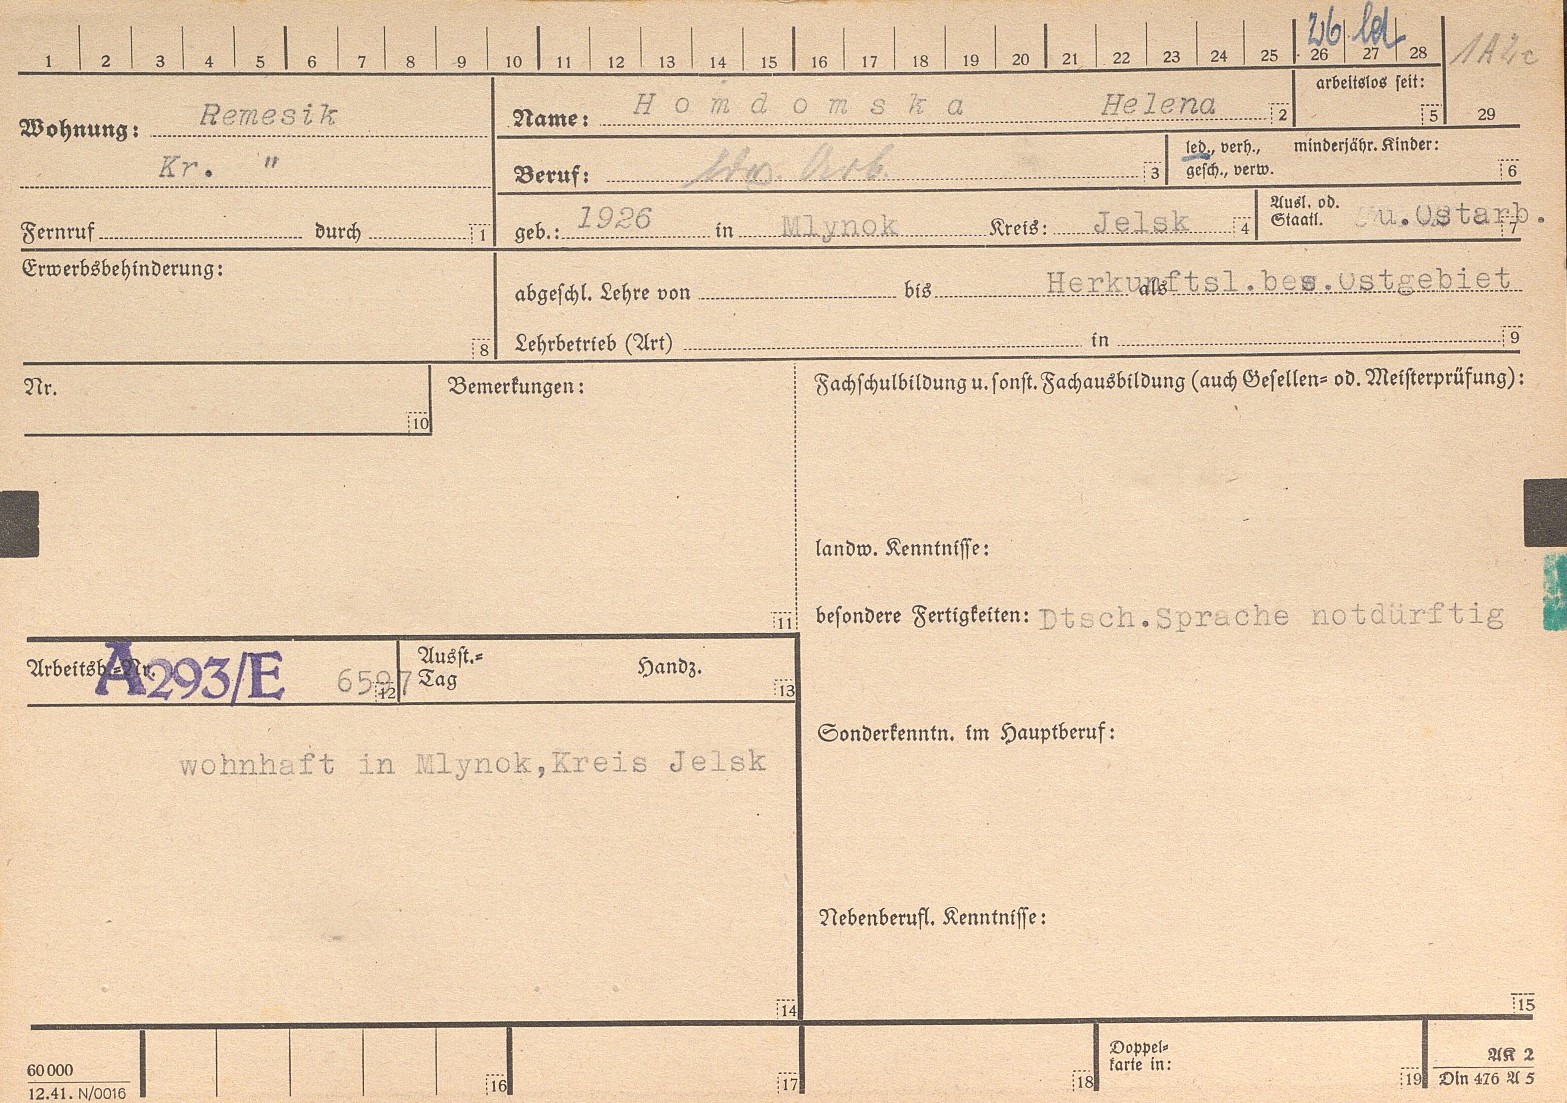 26 led
1 2 3 4 5 6 7 8 9 10 11 12 13 14 15 16 17 18 19 20 21 22 23 24 25 26 27 28 1A2c
Wohnung: Remesik
Kr. "
Fernruf durch 1
Name: Homdomska Helena 2
arbeitslos seit: 5
29
Beruf: ldw. Arb. 3
led., verh., minderjähr. Kinder:
gesch., verw. 6
geb.: 1926 in Mlynok Kreis: Jelsk 4
Ausl. od.
Staatl. u.Ostarb. 7
Erwerbsbehinderung:
8
abgeschl. Lehre von bis als Herkunftsl.bes.Ostgebiet
Lehrbetrieb (Art) in 9
Nr.
10
Bemerkungen:
11
Fachschulbildung u. sonst. Fachausbildung (auch Gesellen= od. Meisterprüfung):
landw. Kenntnisse:
besondere Fertigkeiten: Dtsch.Sprache notdürftig
Arbeitsb.=Nr. A293/E 6597 12
Ausst.=
Tag Handz. 13
wohnhaft in Mlynok,Kreis Jelsk
14
Sonderkenntn. im Hauptberuf:
Nebenberufl. Kenntnisse:
15
60 000
12.41. N/0016
16 17 18
Doppel=
karte in: 19
AK 2
Din 476 A 5